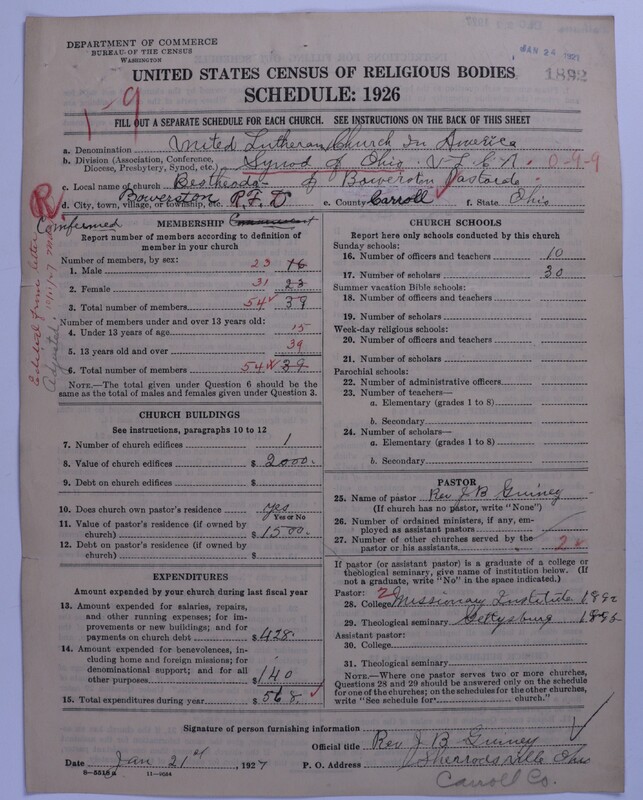 DEPARTMENT OF COMMERCE
BUREAU OF THE CENSUS
WASHINGTON
JAN 24 1927
1892
UNITED STATES CENSUS OF RELIGIOUS BODIES
SCHEDULE: 1926
1-9
FILL OUT A SEPARATE SCHEDULE FOR EACH CHURCH. SEE INSTRUCTIONS ON THE BACK OF THIS SHEET
a. Denomination United Lutheran Church in America
b. Division (Association, Conference, Diocese, Presbytery, Synod, etc.) Synod of Ohio U-L C A. 0-9-9
c. Local name of church of Bowerston Pastorate
d. City, town, village, or township, etc. Bowerston R.F.D e. County Carroll f. State Ohio
R
Comfirmed
MEMBERSHIP
Report number of members according to definition of member in your church
Number of members, by sex:
1. Male 23 16
2. Female 31 23
3. Total number of members 54 39
Number of members under and over 13 years old:
4. Under 13 years of age 15
5. 13 years old and over 39
6. Total number of members 54 39
NOTE.—The total given under Question 6 should be the same as the total of males and females given under Question 3.
CHURCH BUILDINGS
See instructions, paragraphs 10 to 12
7. Number of church edifices 1
8. Value of church edifices $ 2000.
9. Debt on church edifices $
10. Does church own pastor's residence yes
Yes or No
11. Value of pastor's residence (if owned by church) $ 1500.
12. Debt on pastor's residence (if owned by church) $
EXPENDITURES
Amount expended by your church during last fiscal year
13. Amount expended for salaries, repairs, and other running expenses; for improvements or new buildings; and for payments on church debt $ 428.
14. Amount expended for benevolences, including home and foreign missions; for denominational support; and for all other purposes $ 140
15. Total expenditures during year $ 568.
CHURCH SCHOOLS
Report here only schools conducted by this church
Sunday schools:
16. Number of officers and teachers 10
17. Number of scholars 30
Summer vacation Bible schools:
18. Number of officers and teachers
19. Number of scholars
Week-day religious schools:
20. Number of officers and teachers
21. Number of scholars
Parochial schools:
22. Number of administrative officers
23. Number of teachers—
a. Elementary (grades 1 to 8)
b. Secondary
24. Number of scholars—
a. Elementary (grades 1 to 8)
b. Secondary
PASTOR
25. Name of pastor Rev J B Guiney
(If church has no pastor, write "None")
26. Number of ordained ministers, if any, employed as assistant pastors
27. Number of other churches served by the pastor or his assistants 2
If pastor (or assistant pastor) is a graduate of a college or theological seminary, give name of institution below. (If not a graduate, write "No" in the space indicated.)
Pastor: 2
28. College Missionary Institute 1892
29. Theological seminary Gettysburg 1895
Assistant pastor:
30. College
31. Theological seminary
NOTE.—Where one pastor serves two or more churches, Questions 28 and 29 should be answered only on the schedule for one of the churches; on the schedules for the other churches, write "See schedule for church."
Signature of person furnishing information
Official title Rev J B Guiney
Date Jan 21st, 1927 P. O. Address Sherrodsville Ohio
8-5518a 11-9024
Carroll Co.